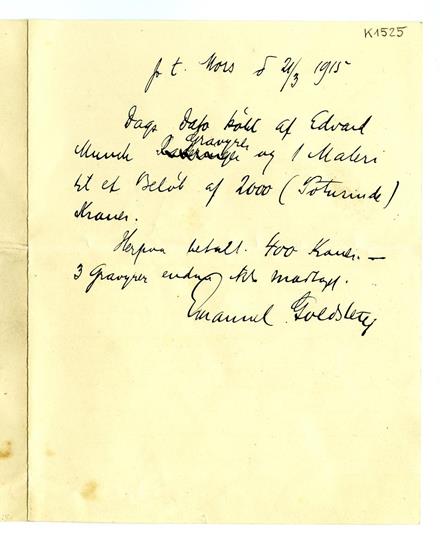 K1525
p t. Mors d 21/3 1915
Dags Dato købt af Edvard
Gravyrer
Munch og 1 Maleri
til et Beløb af 2000 (Totusinde)
Kroner.
Herpaa betalt. 400 Kroner. —
3 Gravyrer endnu ikke modtaget.
Emanuel Goldstein